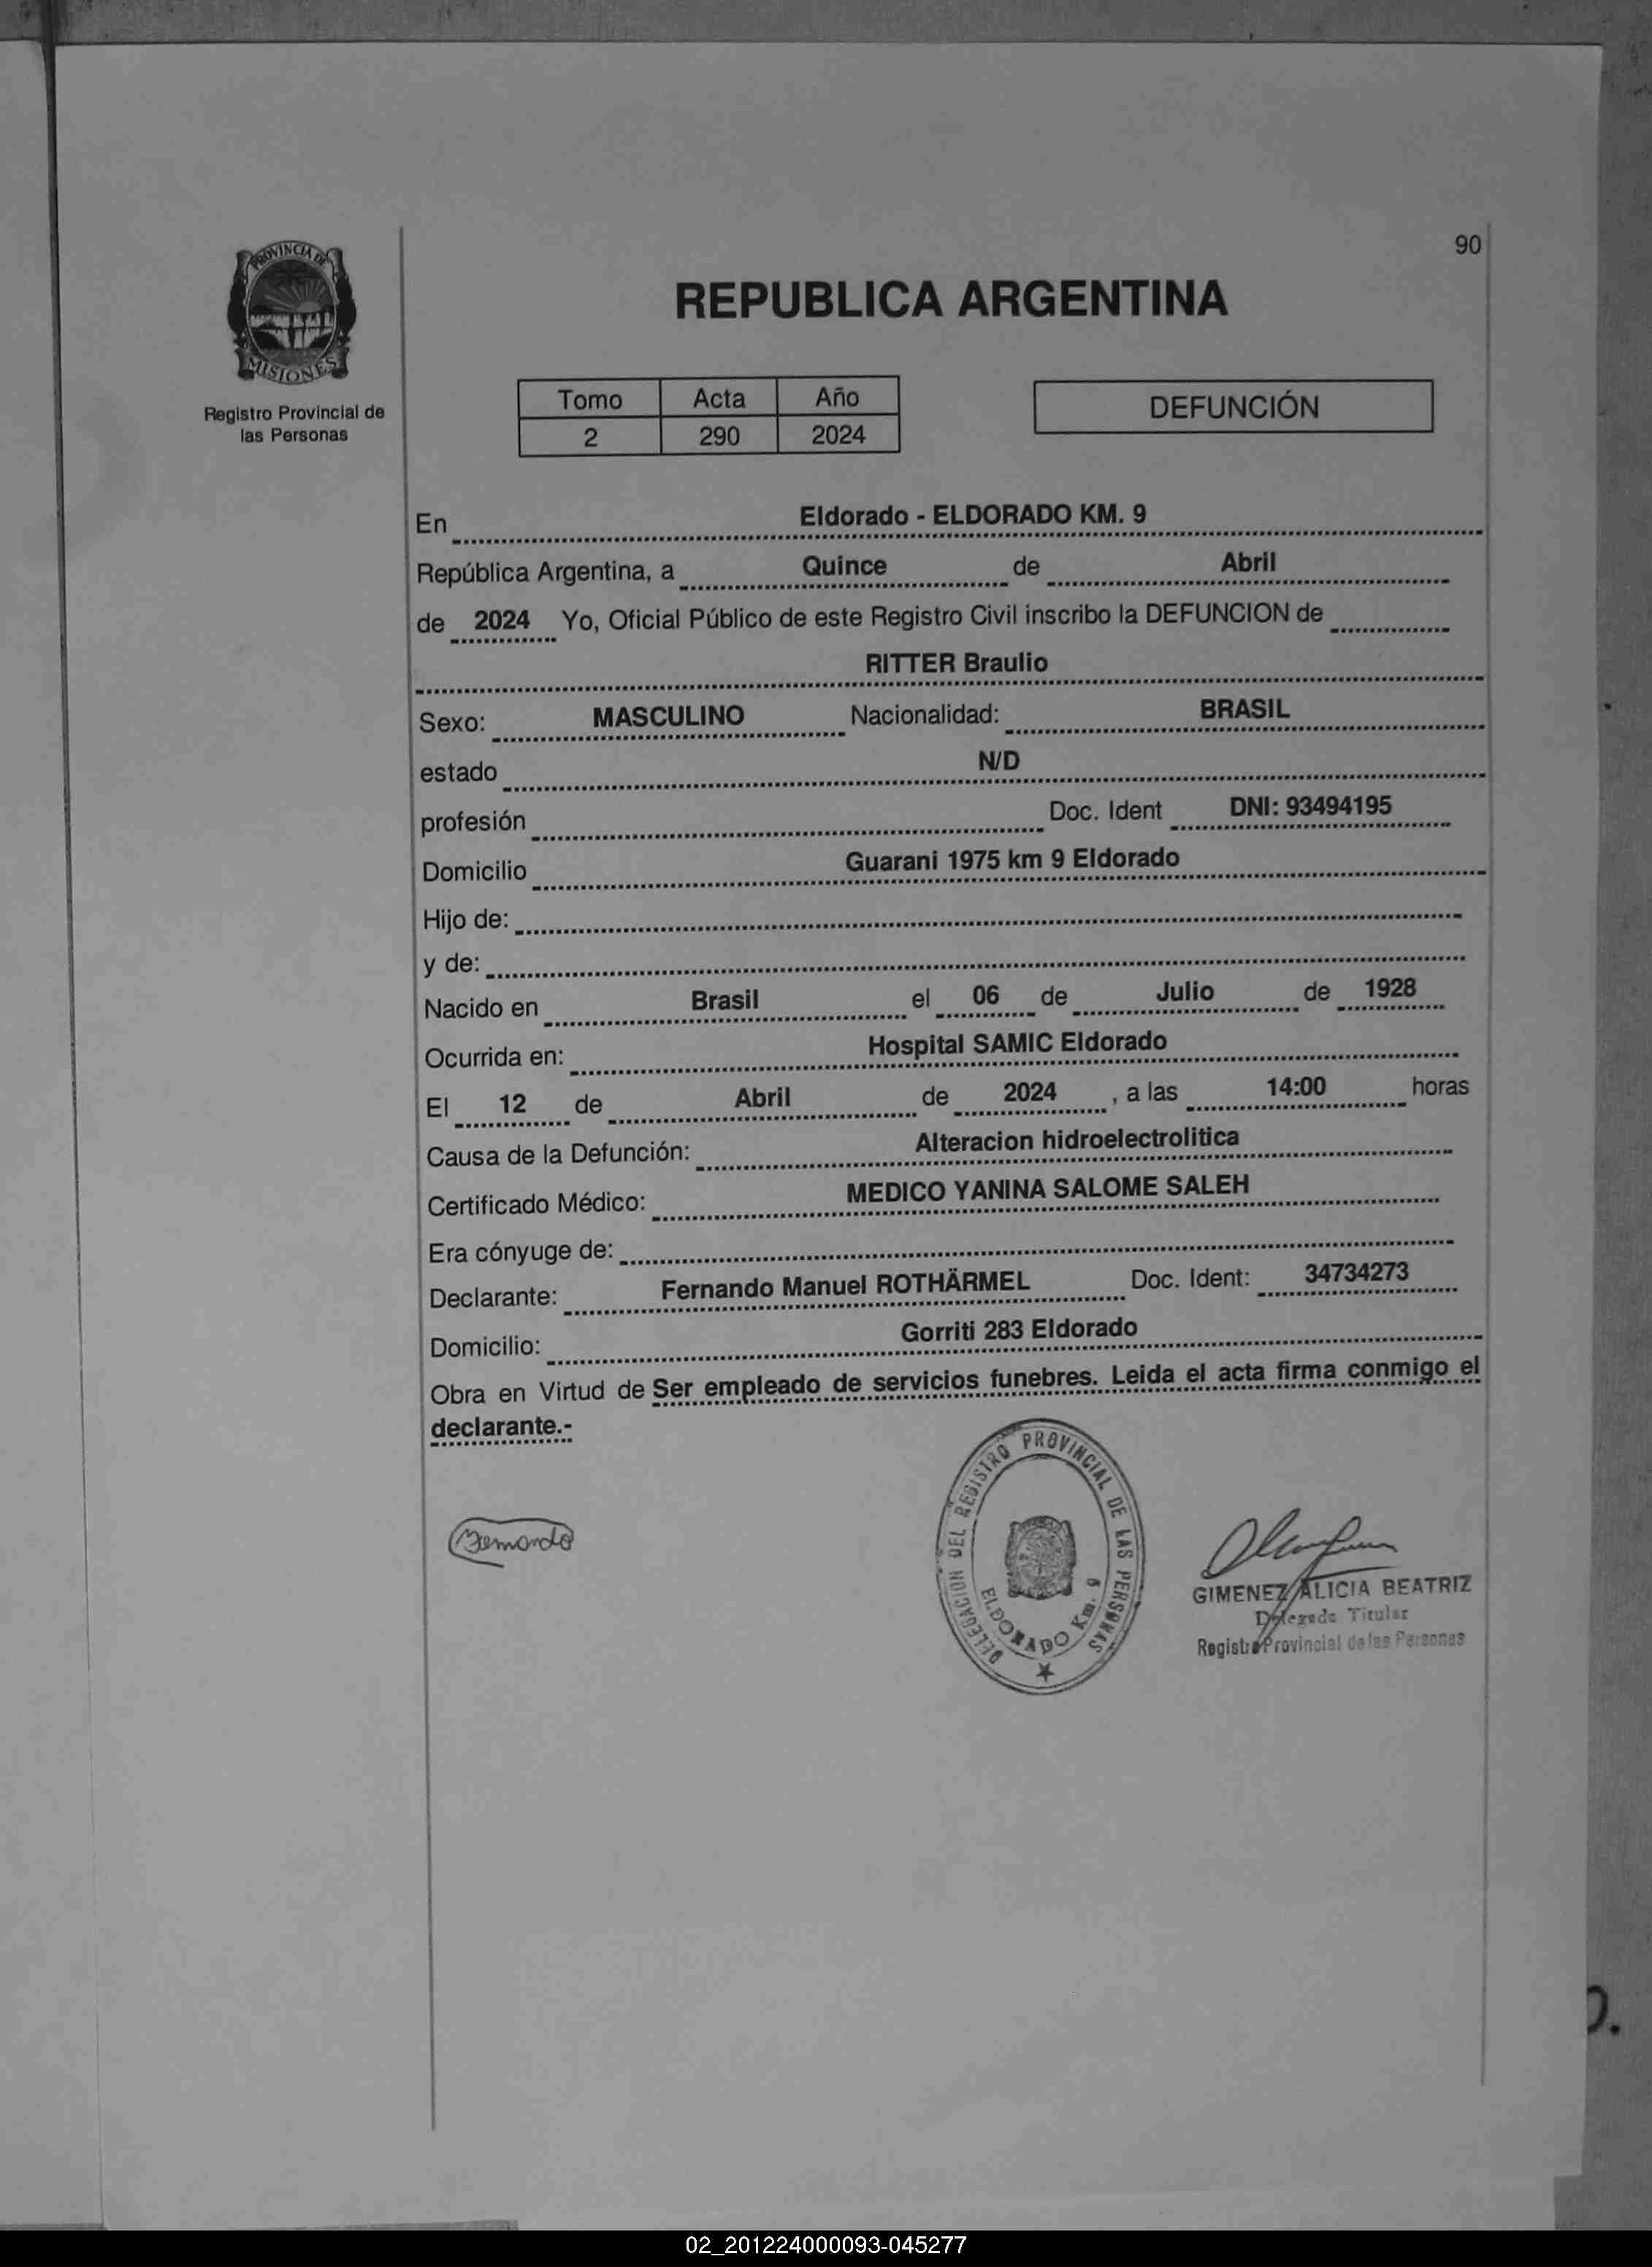 90
PROVINCIA DE
MISIONES
Registro Provincial de
las Personas
REPUBLICA ARGENTINA
Tomo Acta Año
2 290 2024
DEFUNCIÓN
En Eldorado - ELDORADO KM. 9
República Argentina, a Quince de Abril
de 2024 Yo, Oficial Público de este Registro Civil inscribo la DEFUNCION de
RITTER Braulio
Sexo: MASCULINO Nacionalidad: BRASIL
estado N/D
profesión Doc. Ident DNI: 93494195
Domicilio Guarani 1975 km 9 Eldorado
Hijo de:
y de:
Nacido en Brasil el 06 de Julio de 1928
Ocurrida en: Hospital SAMIC Eldorado
El 12 de Abril de 2024 , a las 14:00 horas
Causa de la Defunción: Alteracion hidroelectrolitica
Certificado Médico: MEDICO YANINA SALOME SALEH
Era cónyuge de:
Declarante: Fernando Manuel ROTHÄRMEL Doc. Ident: 34734273
Domicilio: Gorriti 283 Eldorado
Obra en Virtud de Ser empleado de servicios funebres. Leida el acta firma conmigo el
declarante.-
Fernando
DELEGACION DEL REGISTRO PROVINCIAL DE LAS PERSONAS
ELDORADO Km. 9
GIMENEZ ALICIA BEATRIZ
Delegada Titular
Registro Provincial de las Personas
02_201224000093-045277